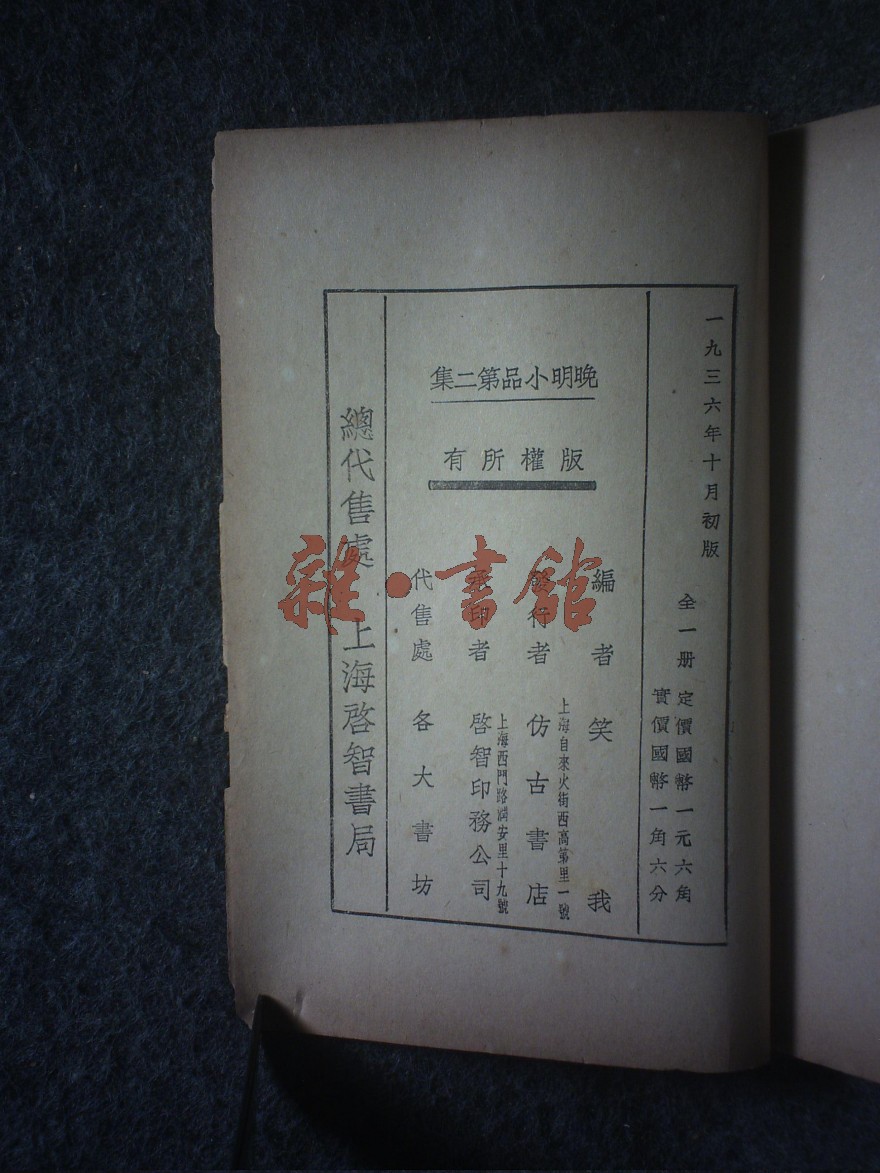 一九三六年十月初版
全一册 定價國幣一元六角
實價國幣一角六分
晚明小品第二集
版權所有
編者 笑我
上海自來火街西高第里一號
發行者 仿古書店
上海西門路潤安里十九號
承印者 啓智印務公司
代售處 各大書坊
總代售處 上海啓智書局
雜·書館